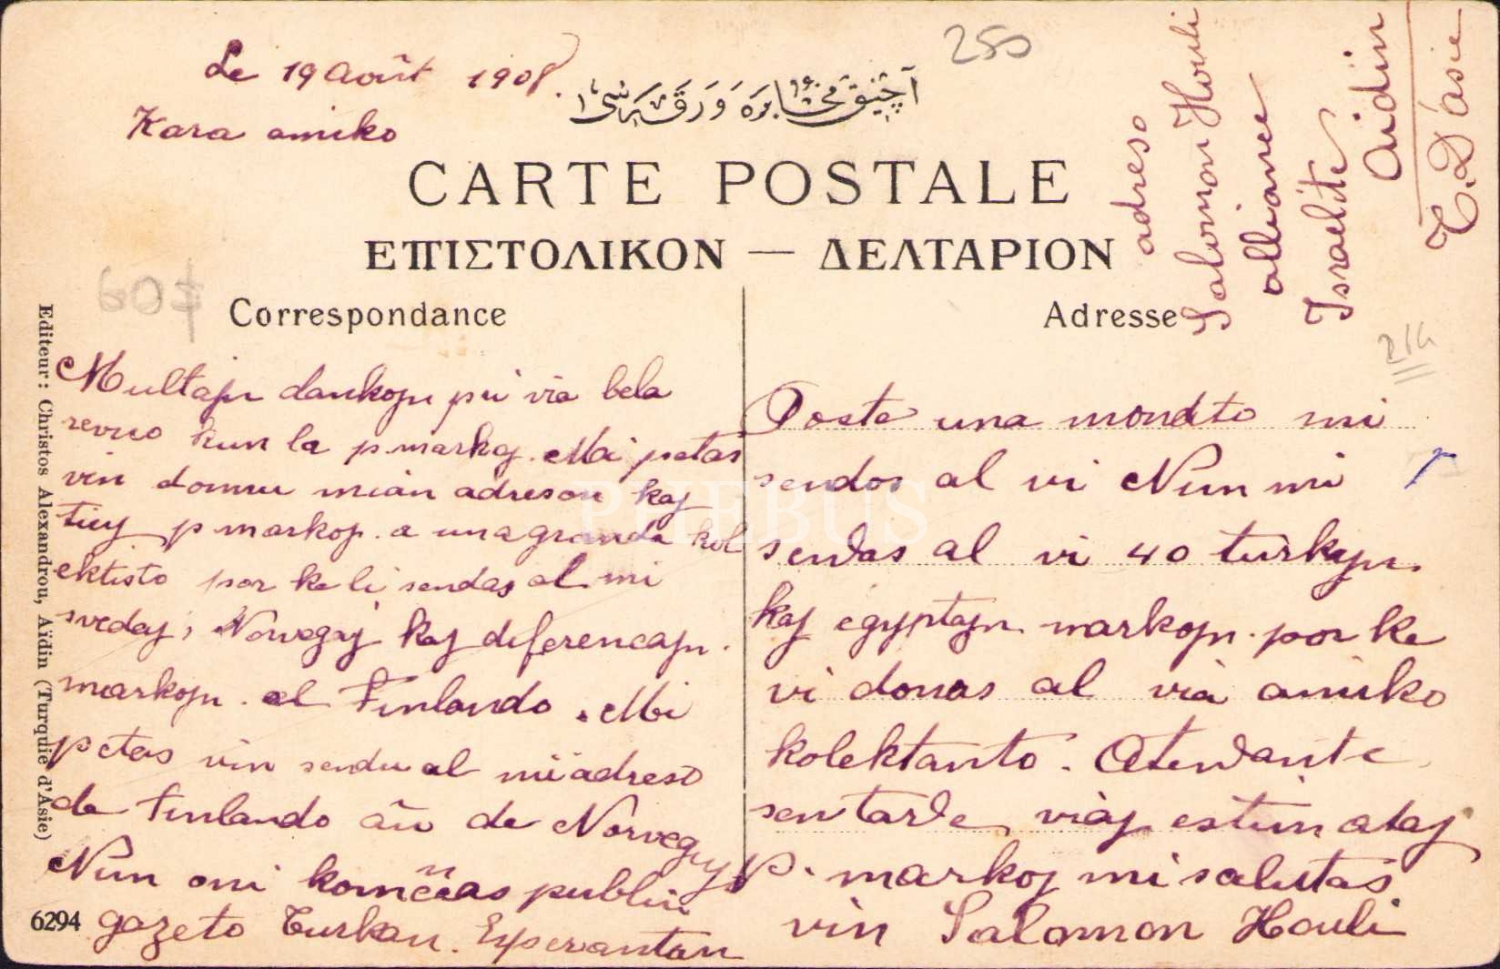 Le 19 Août 1908.
250
Kara amiko
آچیق مخابره ورقه سی
CARTE POSTALE
ΕΠΙΣΤΟΛΙΚΟΝ — ΔΕΛΤΑΡΙΟΝ
607
Correspondance
Adresse
adreso
Salomon Houli
alliance
Israélite
Aidin
T. D'asie
214
Editeur: Christos Alexandrou, Aïdin (Turquie d'Asie)
Multajn dankojn pri via bela
revuo kun la p markoj. Mi petas
vin donu mian adreson kaj
tiuj p markojn a una granda kol
ektisto por ke li sendas al mi
svedaj, Norvegaj kaj diferencajn
markojn el Finlando. Mi
petas vin sendu al mi adreso
de Finlando aŭ de Norvegujo
Nun oni komĉas publiu
gazeto Turkan. Esperantan
Poste una mondto mi
sendos al vi Nun mi
sendas al vi 40 turkajn
kaj egyptajn markojn por ke
vi donas al via amiko
kolektanto. Atendante
sentarde viaj estimataj
P. markoj mi salutas
vin Salomon Houli
6294
PHEBUS